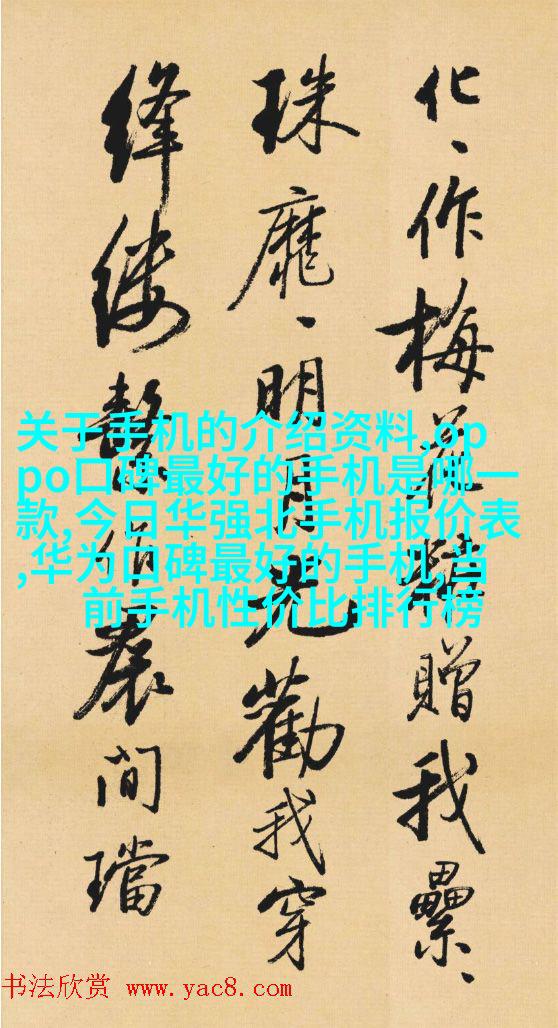 化、作梅花贈我纍、
珠靡、明月光勸我穿
絳縷繫作間璫
关于手机的介绍资料,op
po口碑最好的手机是哪一
款,今日华强北手机报价表
,华为口碑最好的手机,当
前手机性价比排行榜
书法欣赏 www.yac8.com